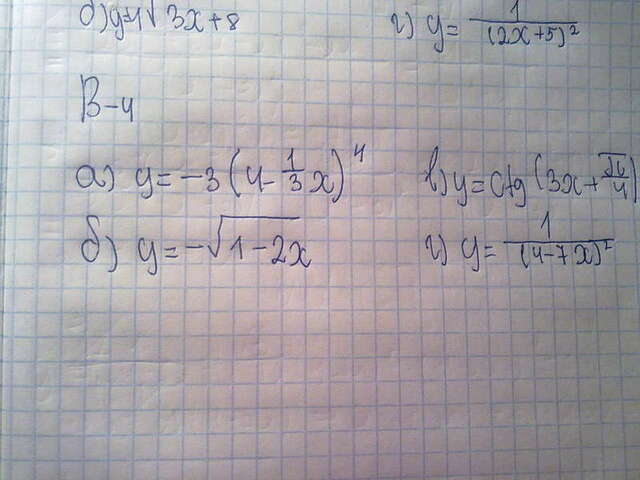 б) y=4√3x+8 г) y= 1/(2x+5)²
В-4
а) y=-3(4-1/3x)⁴ в) y=ctg(3x+π/4)
б) y=-√1-2x г) y= 1/(4-7x)²